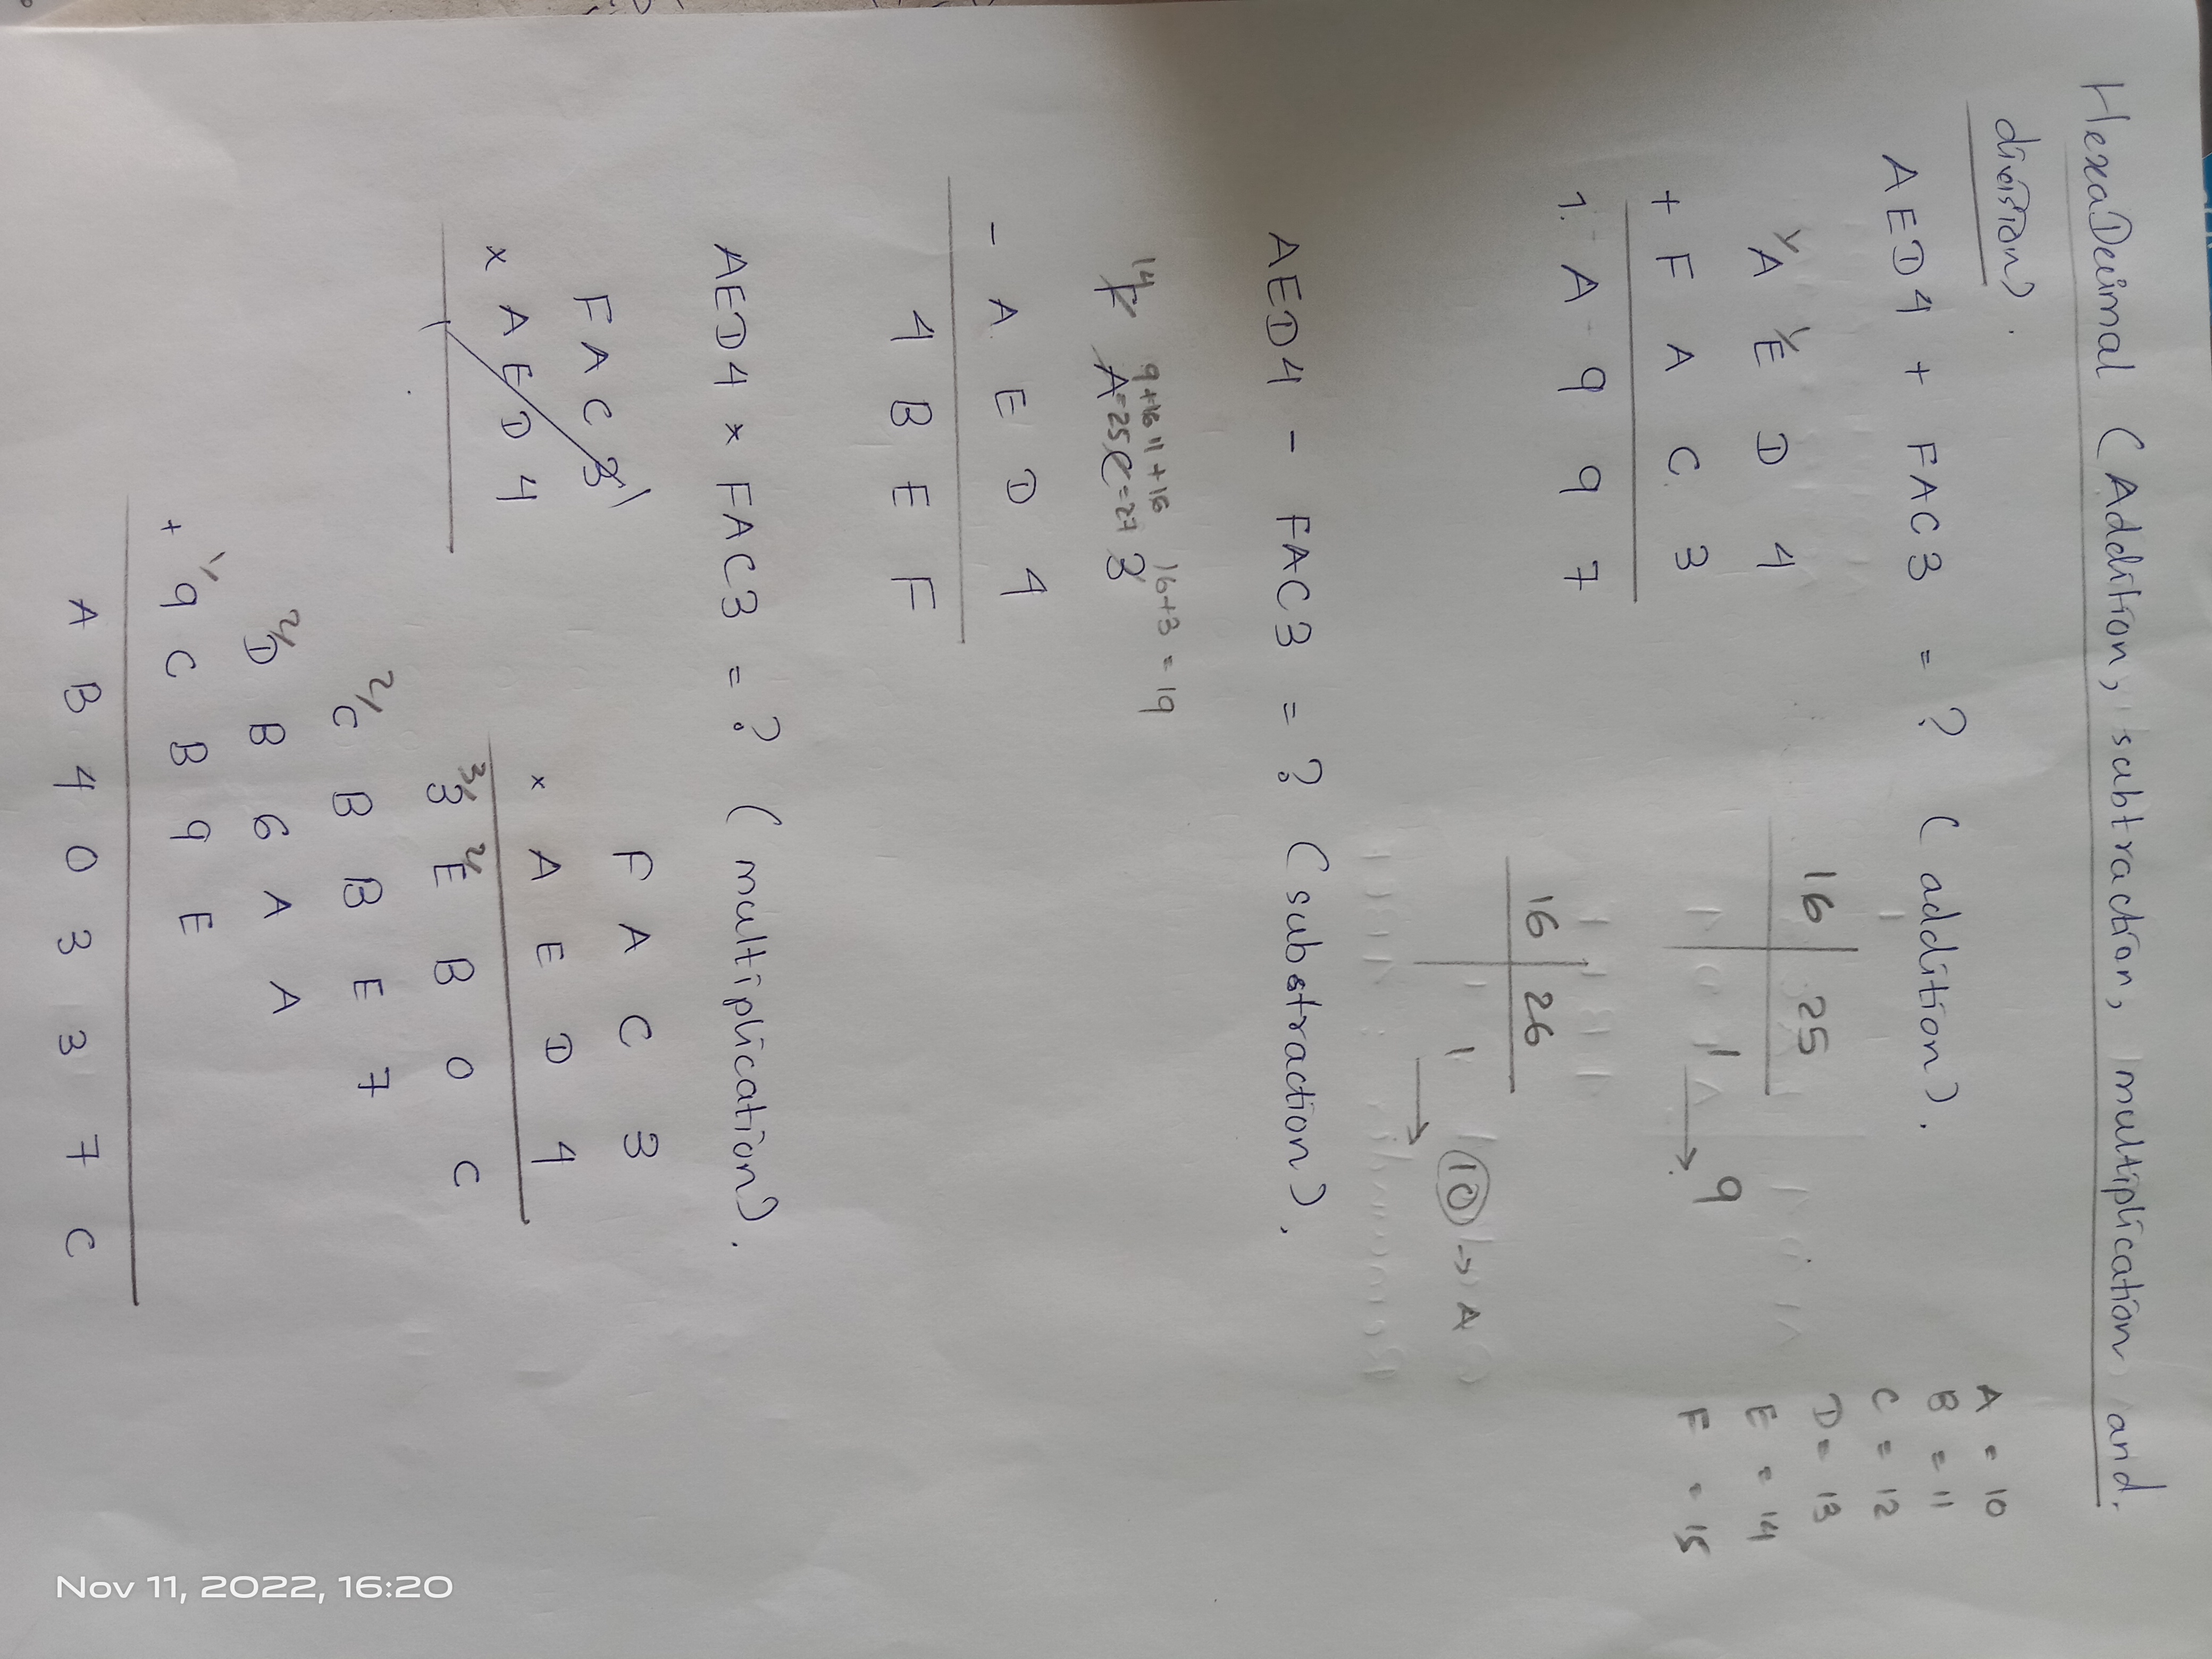 HexaDecimal (Addition, subtraction, multiplication and.
division).
A = 10
B = 11
C = 12
D = 13
E = 14
F = 15
AED4 + FAC3 = ? (addition).
1 1
A E D 4
+ F A C 3
1 A 9 9 7
16 | 25
1 → 9
16 | 26
1 → 10 → A
AED4 - FAC3 = ? (substraction).
14 9+16 11+16 16+3 = 19
F A=25 C=27 3
- A E D 4
4 B E F
AED4 x FAC3 = ? (multiplication).
F A C 3
x A E D 4
F A C 3
x A E D 4
3 2
3 E B 0 C
2
C B B E 7
2
D B 6 A A
1
+ 9 C B 9 E
A B 4 0 3 3 7 C
Nov 11, 2022, 16:20